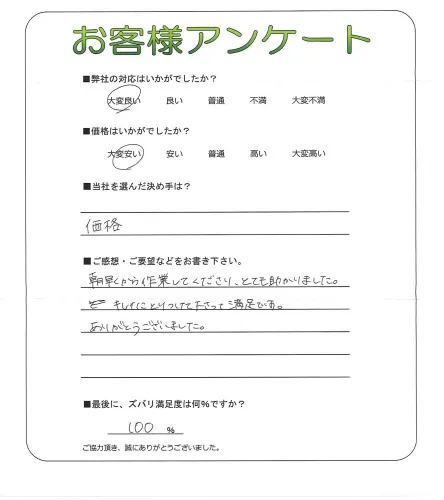 お客様アンケート
■弊社の対応はいかがでしたか？
大変良い 良い 普通 不満 大変不満
■価格はいかがでしたか？
大変安い 安い 普通 高い 大変高い
■当社を選んだ決め手は？
価格
■ご感想・ご要望などをお書き下さい。
朝早くから作業してくださり、とても助かりました。
キレイにとりつけて下さって満足です。
ありがとうございました。
■最後に、ズバリ満足度は何％ですか？
100 %
ご協力頂き、誠にありがとうございました。